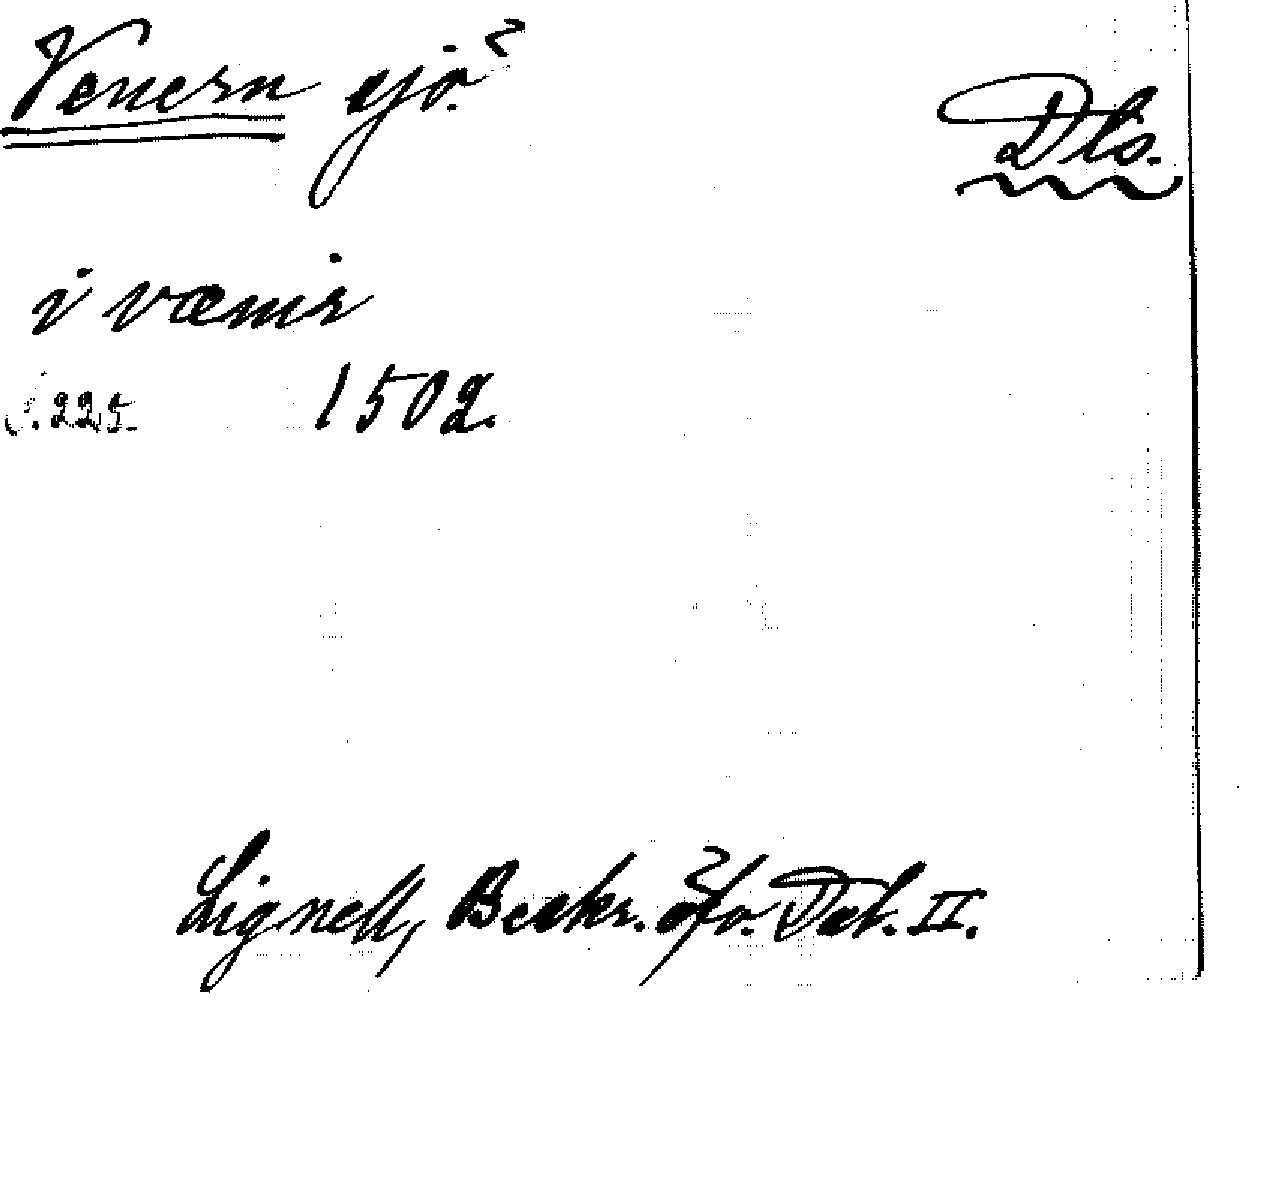 Venern sjö.
Dls.
i vænir
s. 225. 1502.
Lignell, Beskr. öfv. Dal. II.